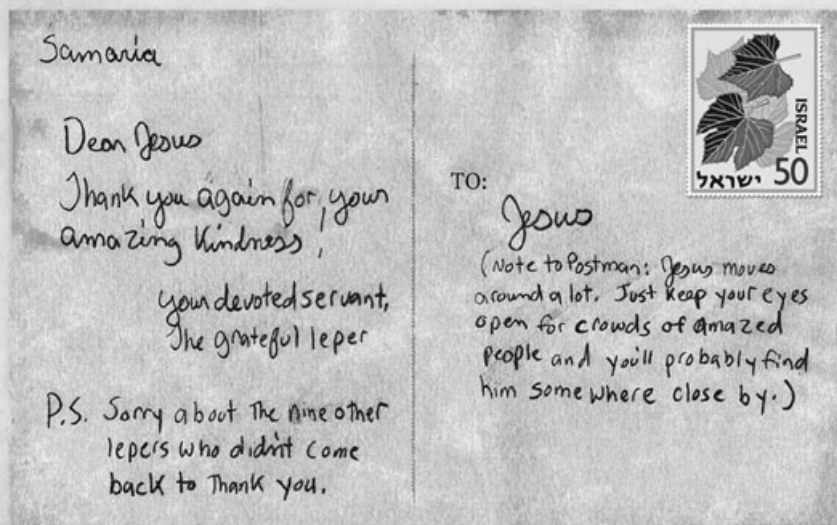 Samaria
Dear Jesus
Thank you again for your
amazing kindness!
your devoted servant,
The grateful leper
P.S. Sorry about the nine other
lepers who didn't come
back to Thank you.
ISRAEL
ישראל 50
TO:
Jesus
(Note to Postman: Jesus moves
around a lot. Just keep your eyes
open for crowds of amazed
people and you'll probably find
him somewhere close by.)